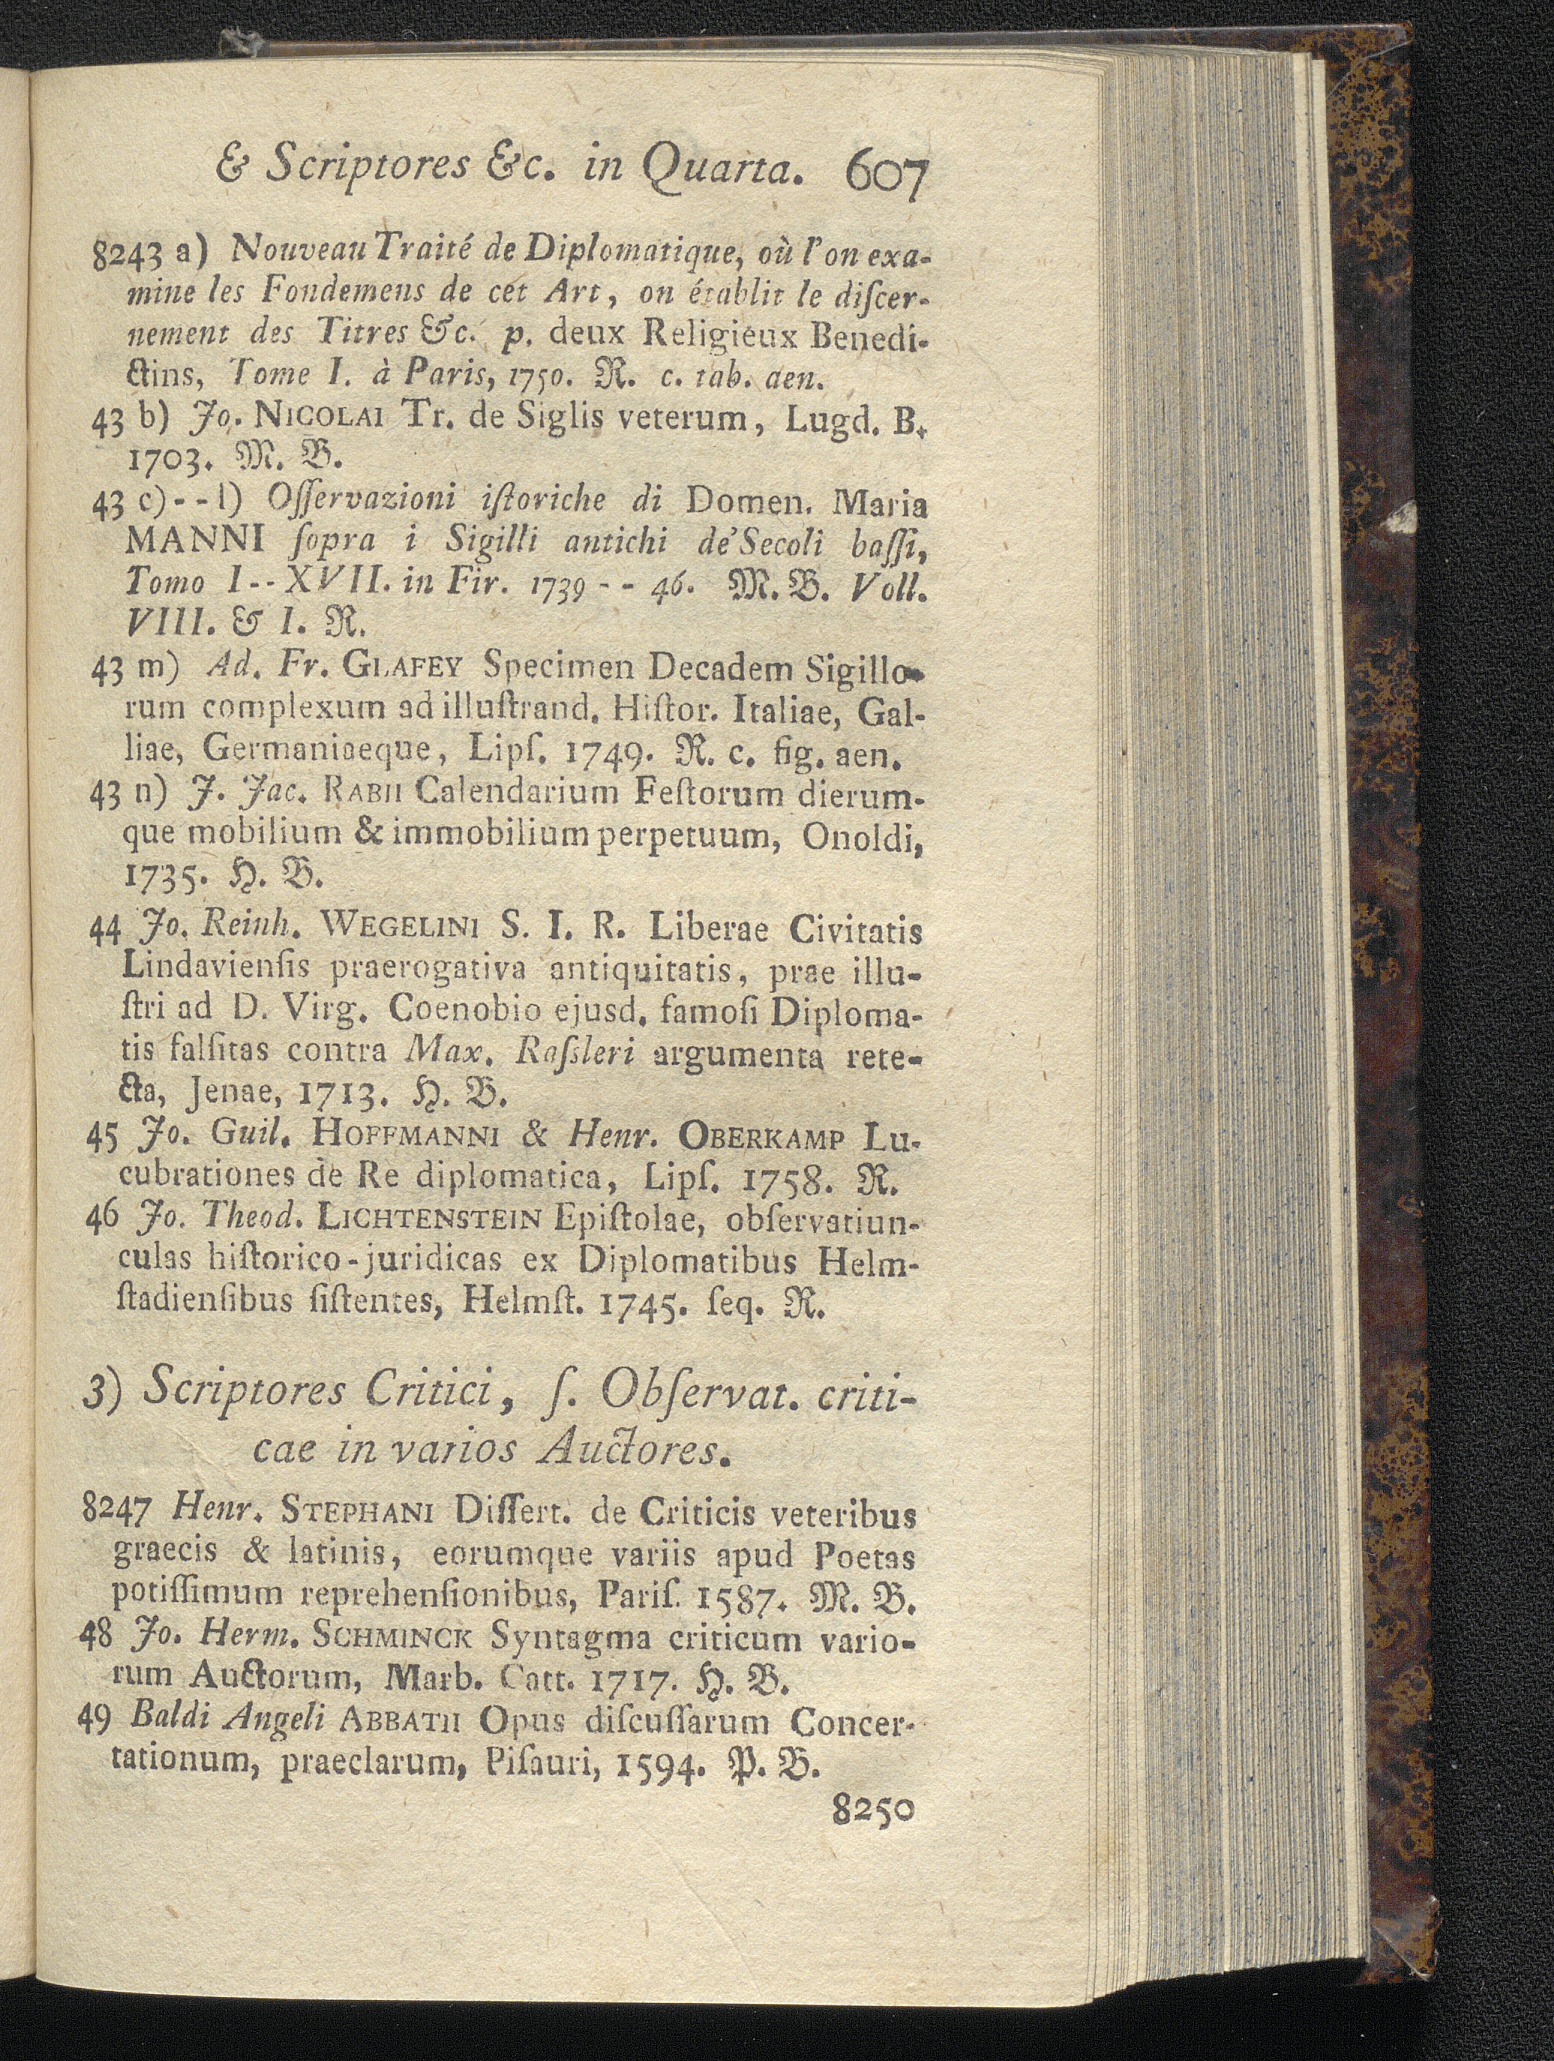 & Scriptores &c. in Quarta. 607
8243 a) Nouveau Traité de Diplomatique, où l'on exa-
mine les Fondemens de cet Art, on établit le diſcer-
nement des Titres &c. p. deux Religieux Benedi-
ctins, Tome I. à Paris, 1750. R. c. tab. aen.
43 b) Jo. NICOLAI Tr. de Siglis veterum, Lugd. B.
1703. M. B.
43 c) - - l) Oſſervazioni iſtoriche di Domen. Maria
MANNI ſopra i Sigilli antichi de' Secoli baſſi,
Tomo I - - XVII. in Fir. 1739 - - 46. M. B. Voll.
VIII. & I. R.
43 m) Ad. Fr. GLAFEY Specimen Decadem Sigillo-
rum complexum ad illuſtrand. Hiſtor. Italiae, Gal-
liae, Germaniaeque, Lipſ. 1749. R. c. fig. aen.
43 n) J. Jac. RABII Calendarium Feſtorum dierum-
que mobilium & immobilium perpetuum, Onoldi,
1735. H. B.
44 Jo. Reinh. WEGELINI S. I. R. Liberae Civitatis
Lindavienſis praerogativa antiquitatis, prae illu-
ſtri ad D. Virg. Coenobio ejusd. famoſi Diploma-
tis falſitas contra Max. Raſsleri argumenta rete-
cta, Jenae, 1713. H. B.
45 Jo. Guil. HOFFMANNI & Henr. OBERKAMP Lu-
cubrationes de Re diplomatica, Lipſ. 1758. R.
46 Jo. Theod. LICHTENSTEIN Epiſtolae, obſervatiun-
culas hiſtorico-juridicas ex Diplomatibus Helm-
ſtadienſibus ſiſtentes, Helmſt. 1745. ſeq. R.
3) Scriptores Critici, ſ. Obſervat. criti-
cae in varios Auctores.
8247 Henr. STEPHANI Diſſert. de Criticis veteribus
graecis & latinis, eorumque variis apud Poetas
potiſſimum reprehenſionibus, Pariſ. 1587. M. B.
48 Jo. Herm. SCHMINCK Syntagma criticum vario-
rum Auctorum, Marb. Catt. 1717. H. B.
49 Baldi Angeli ABBATII Opus diſcuſſarum Concer-
tationum, praeclarum, Piſauri, 1594. P. B.
8250